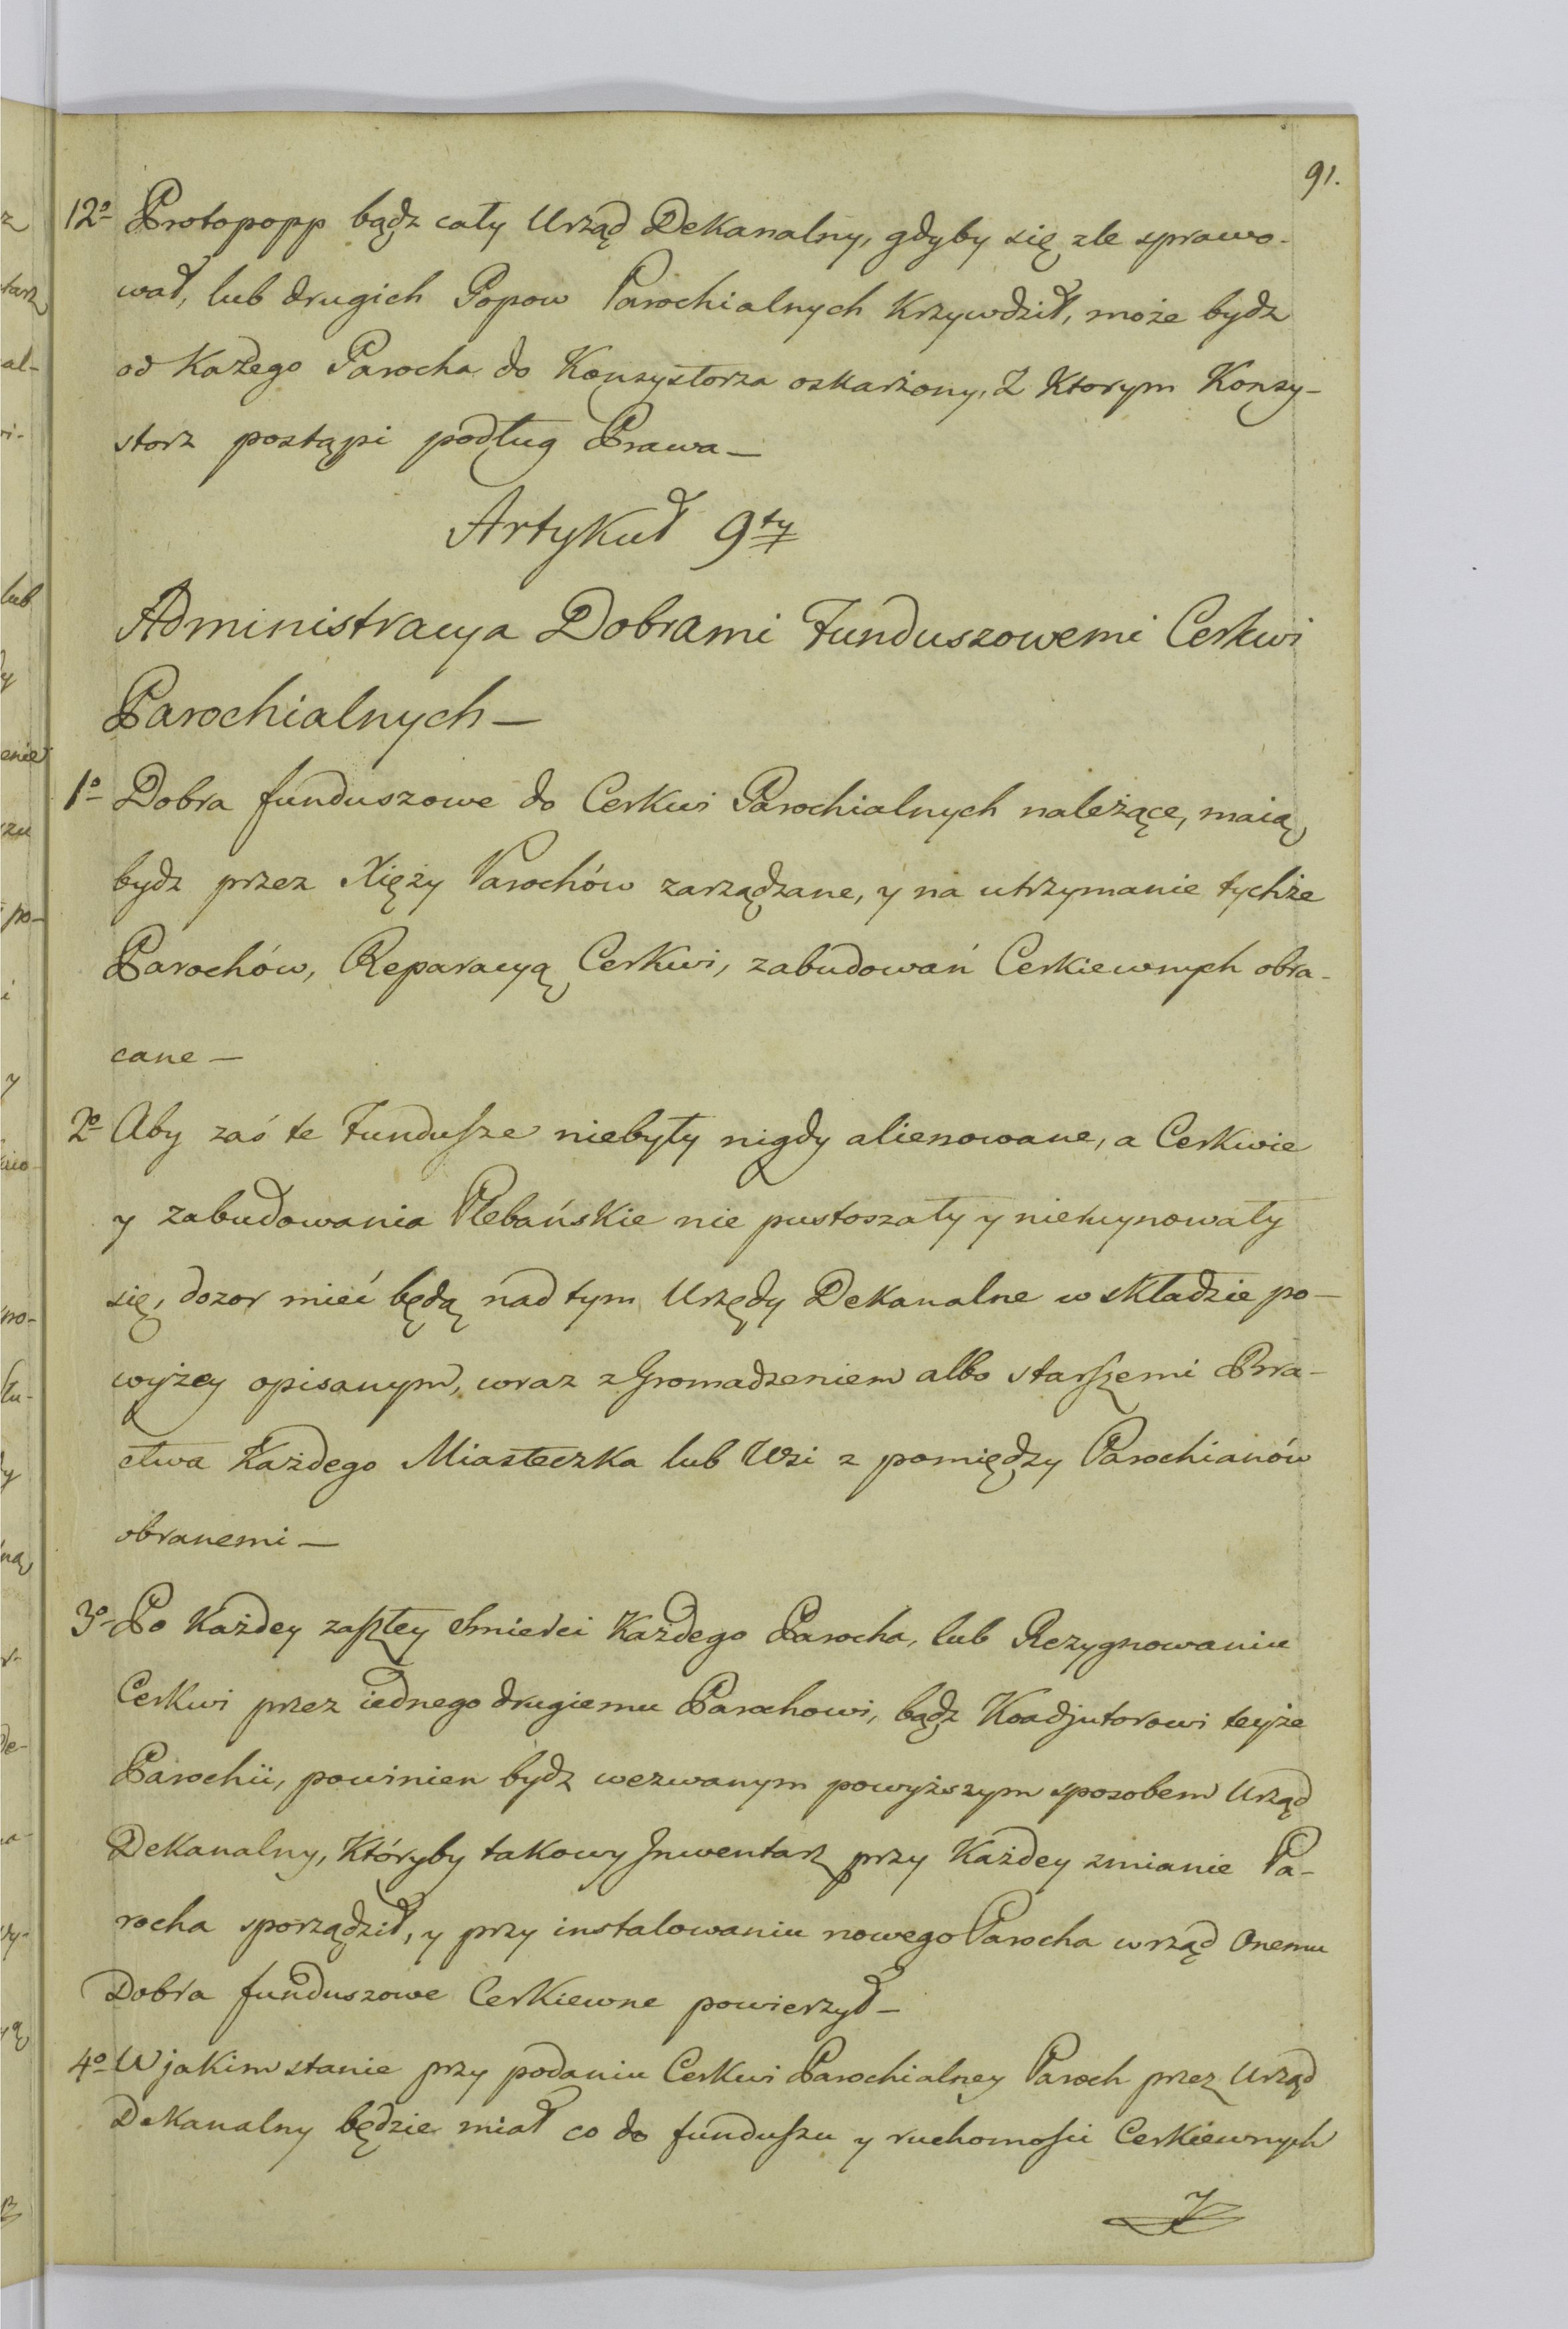 91.
12º Protopopp bądz cały Urząd Dekanalny, gdyby się zle sprawo-
wał, lub drugich Popow Parochialnych krzywdził, może bydz
od Każego Parocha do Konzystorza oskarżony, Z Ktorym Konsy-
storz postąpi podług Prawa —
Artykuł 9ty
Administracya Dobrami Funduszowemi Cerkwi
Parochialnych —
1º Dobra funduszowe do Cerkwi Parochialnych należące, maią
bydz przez Xięży Parochów zarządzane, y na utrzymanie tychże
Parochów, Reparacyą Cerkwi, zabudowań Cerkiewnych obra-
cane —
2º Aby zaś te Fundusze niebyły nigdy alienowane, a Cerkwie
y zabudowania Plebańskie nie pustoszały y nieruynowały
się, dozor mieć będą nad tym Urzędy Dekanalne w składzie po-
wyżey opisanym, wraz z Gromadzeniem albo starszemi Bra-
ctwa Każdego Miasteczka lub Wsi z pomiędzy Parochianów
obranemi —
3º Po Każdey zaszłey śmierci Każdego Parocha, lub Rezygnowaniu
Cerkwi przez iednego drugiemu Parochowi, bądz Koadjutorowi teyże
Parochii, powinien bydz wezwanym powyższym sposobem Urząd
Dekanalny, Któryby takowy Inwentarz przy Każdey zmianie Pa-
rocha sporządził, y przy instalowaniu nowego Parocha w rząd Onemu
Dobra funduszowe Cerkiewne powierzył —
4º W jakim stanie przy podaniu Cerkwi Parochialney Paroch przez Urząd
Dekanalny będzie miał co do funduszu y ruchomości Cerkiewnych